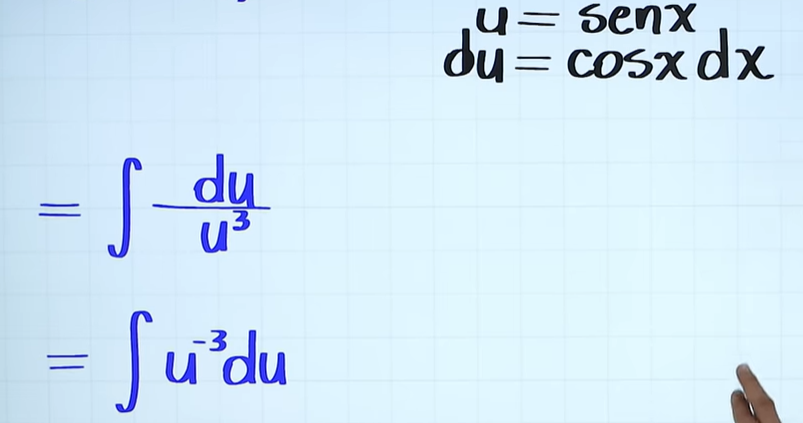 u = senx
du = cosx dx
= ∫ du/u³
= ∫ u⁻³du